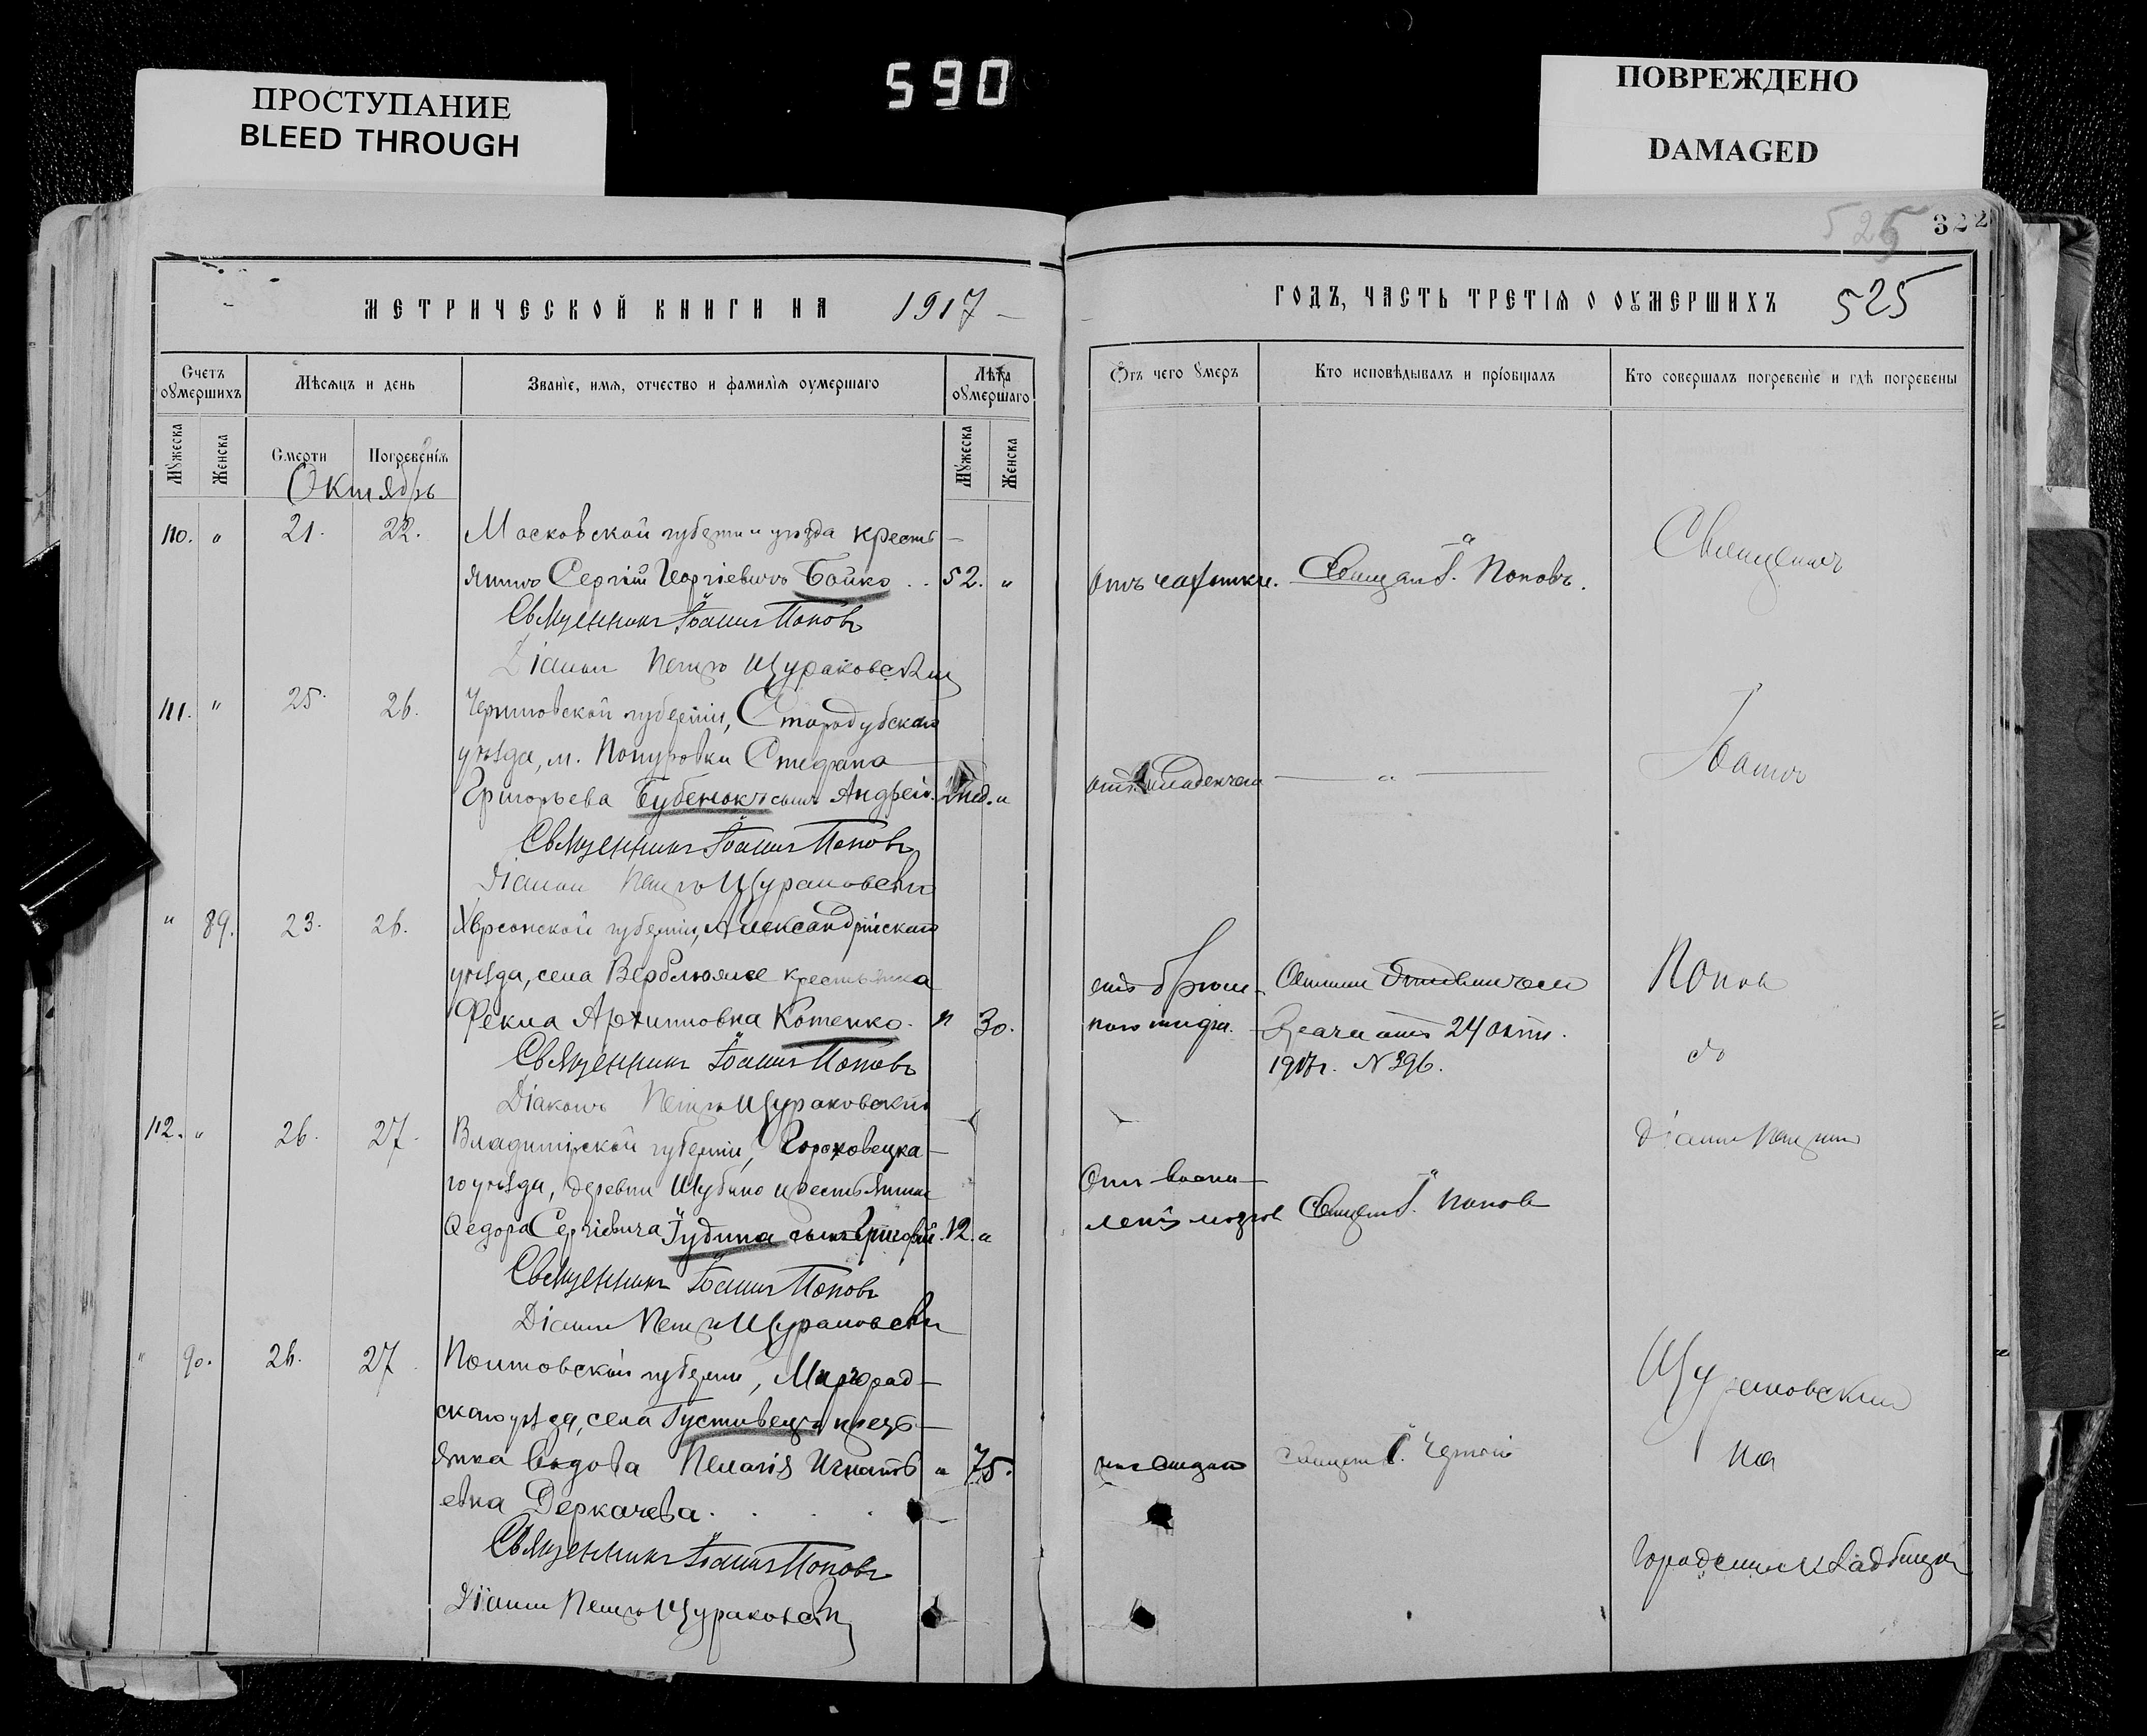 590
ПРОСТУПАНИЕ
BLEED THROUGH
ПОВРЕЖДЕНО
DAMAGED
525 322
МЕТРИЧЕСКОЙ КНИГИ НА 1917
Счетъ оумершихъ
Мѣсяцъ и день
Званіе, имя, отчество и фамилія оумершаго
Лѣта оумершаго
Мужеска
Женска
Смерти
Погребенія
Мужеска
Женска
Октябрь
110. " 21. 22. Московской губерніи уѣзда кресть-
янинъ Сергій Георгіевичъ Бойко . . 52. "
Священникъ Іоаннъ Поповъ
Діаконъ Петръ Щураковскій
111. " 25. 26. Черниговской губерніи, Стародубскаго
уѣзда, м. Понуровки Стефана
Григорьева Бубенокъ сынъ Андрей. 2 нед. "
Священникъ Іоаннъ Поповъ
Діаконъ Петръ Щураковскій
" 89. 23. 26. Херсонской губерніи, Александрійскаго
уѣзда, села Верблюжье крестьянка
Фекла Архиповна Котенко. " 30.
Священникъ Іоаннъ Поповъ
Діаконъ Петръ Щураковскій
112. " 26. 27. Владимірской губерніи, Гороховецка-
го уѣзда, деревни Шубино крестьянина
Федора Сергіевича Гудина сынъ Григорій. 12. "
Священникъ Іоаннъ Поповъ
Діаконъ Петръ Щураковскій
" 90. 26. 27 Полтовской губерніи, Миргород-
скаго уѣзда, села Густивецъ кресть-
янка вдова Пелагія Игнать- " 75.
евна Деркачева. . . .
Священникъ Іоаннъ Поповъ
Діаконъ Петръ Щураковскій
ГОДЪ, ЧАСТЬ ТРЕТІЯ О ОУМЕРШИХЪ 525
Отъ чего умеръ
Кто исповѣдывалъ и пріобщалъ
Кто совершалъ погребеніе и гдѣ погребены
Отъ чахотки. Священ. І. Поповъ.
Священникъ
Іоаннъ
отъ младенческ. "
отъ брюш-
ного тифа.
врача отъ 24 окт.
1917 г. № 396.
Поповъ
съ
Діакономъ Петромъ
Отъ воспа-
ленія мозгов Священ. І. Поповъ
Щураковскимъ
на
городскомъ кладбищѣ